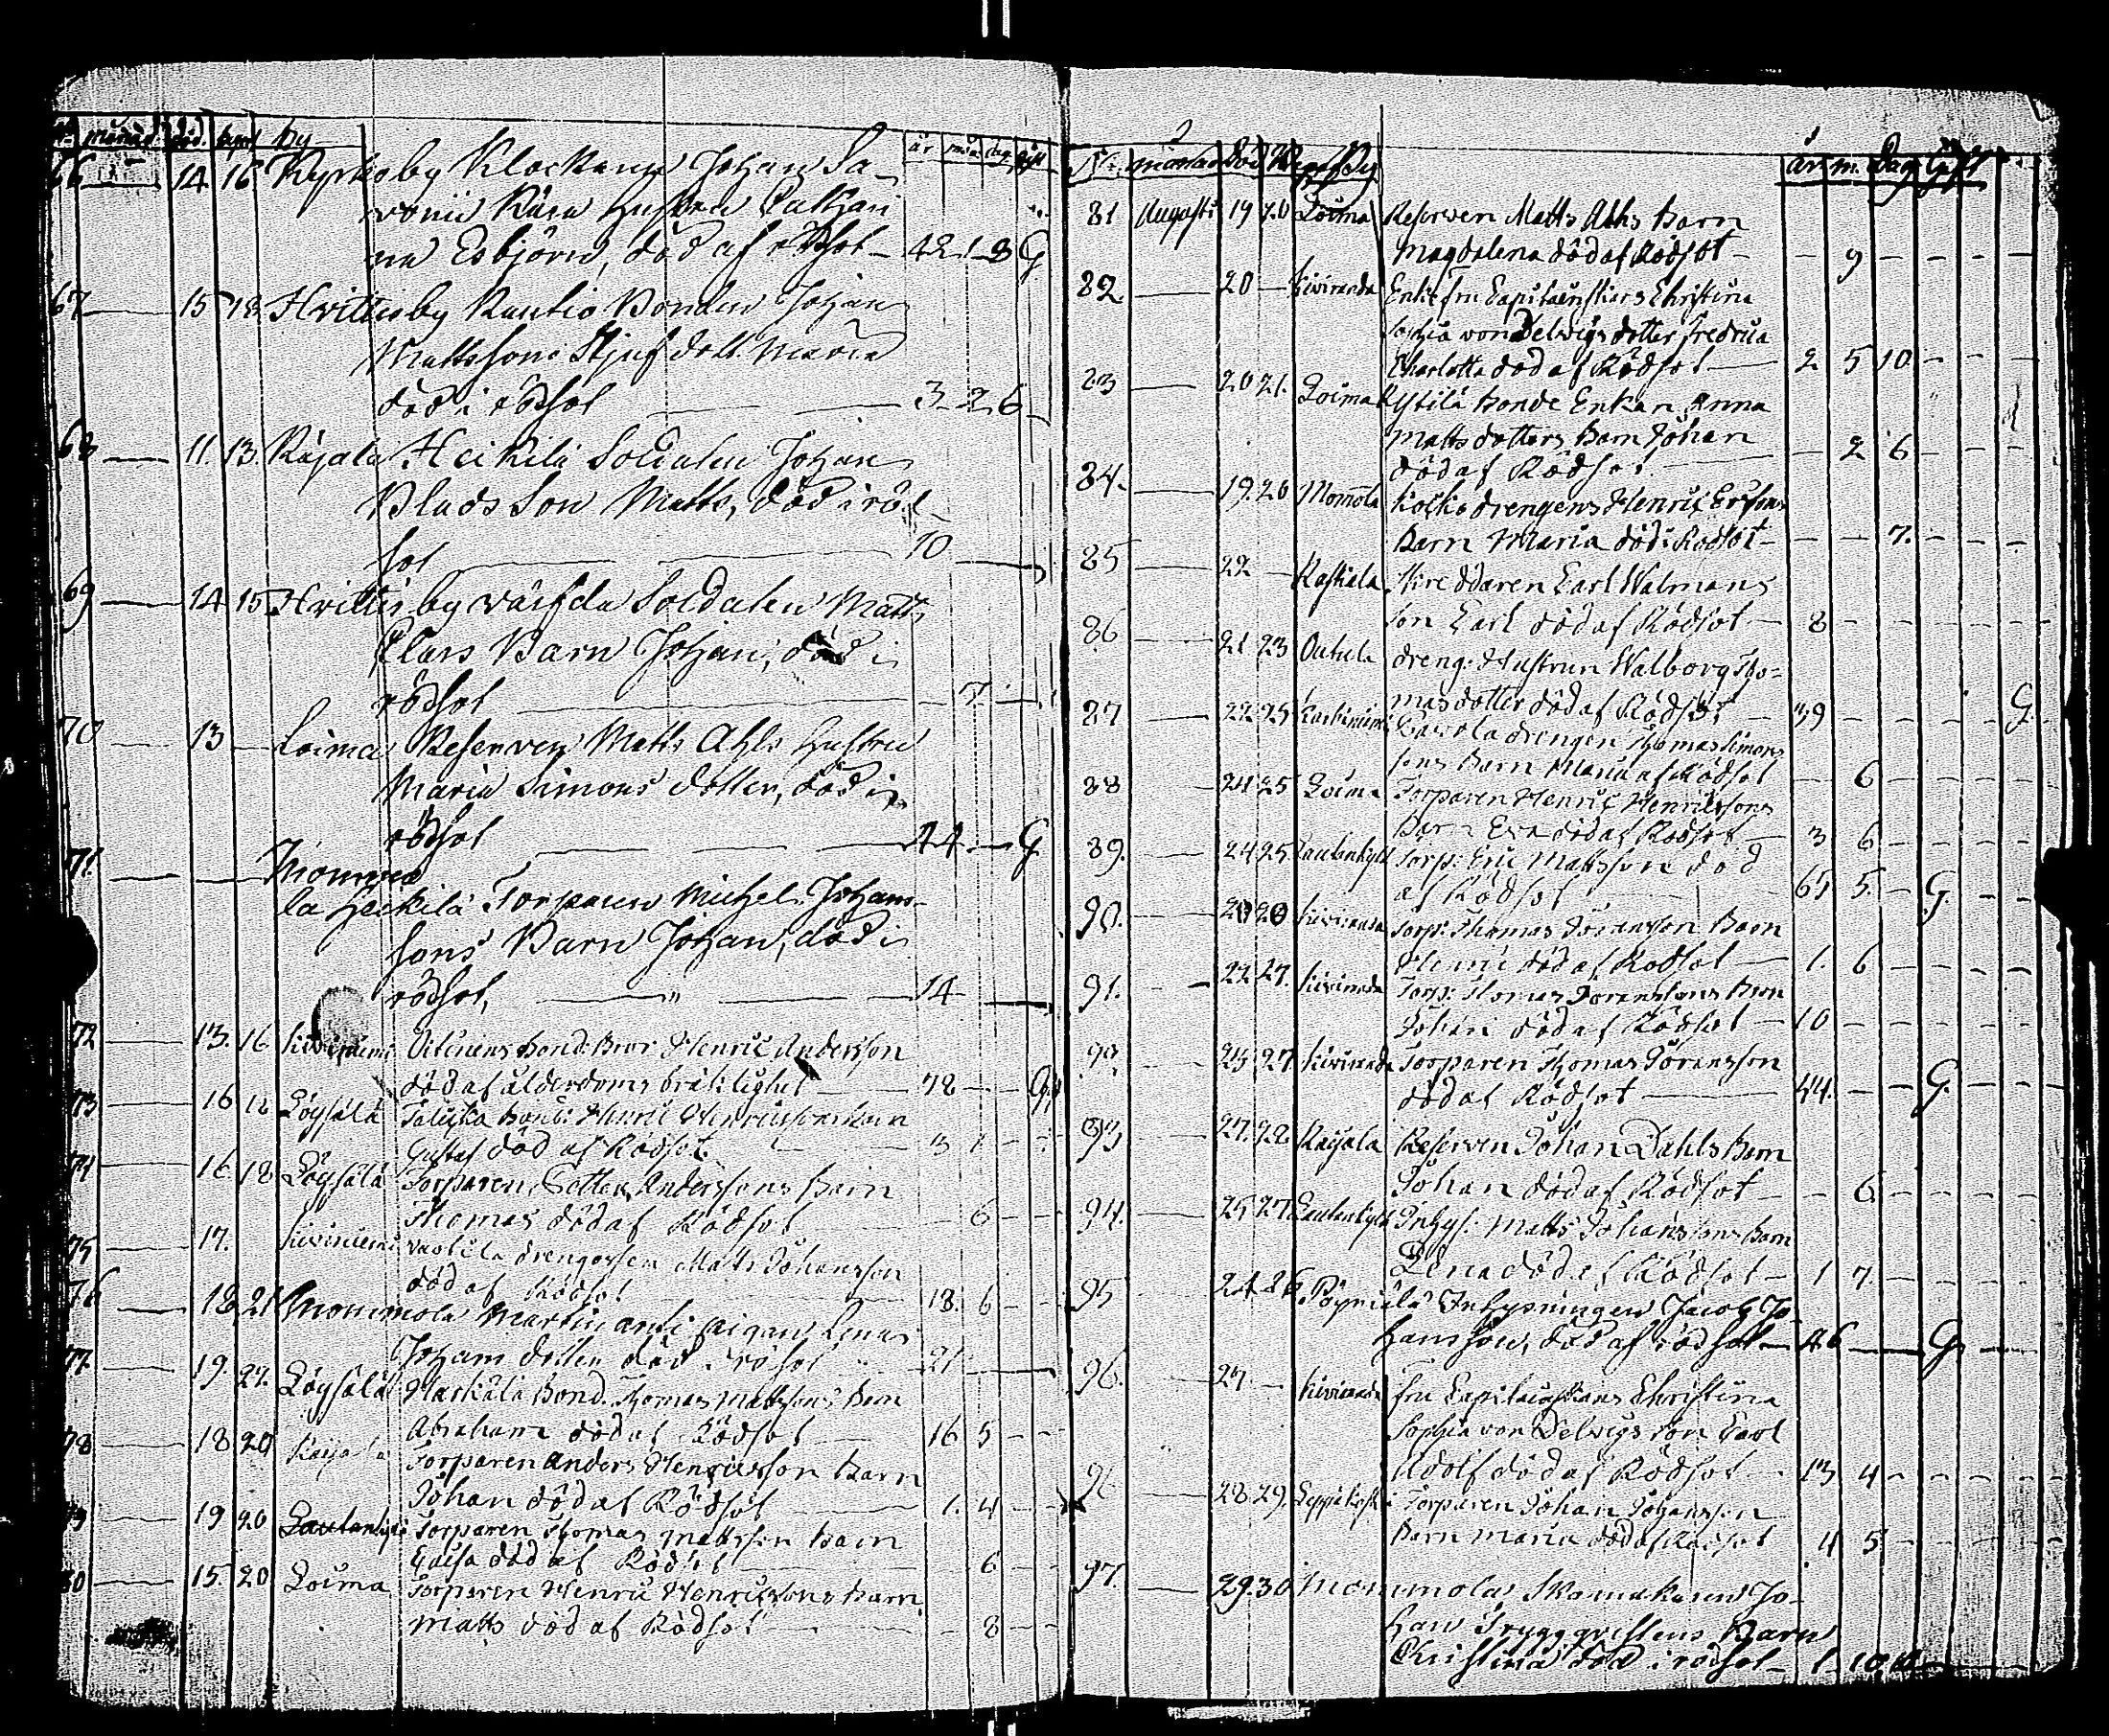 månad död. begr by år mån dag gift
66 — 14 16 Kyrkoby Klockaren Johan Sa-
Kära hustru Cathari
na Esbjörn, död af rödsot — 42 1 8 G
67 — 15 18 Hvittisby Rautio Bonden Johan
Mattssons Stjuf dott. Maria
död i rödsot — 3 2 6
68 — 11. 13. Räjala Heikilä Soldaten Johan
Son Matts, död i röd-
sot — 10
69 — 14 15 Hvittisby Soldaten Matts
Barn Johan, död i
rödsot — 7
70 — 13 — Loima Reserven Matts Ahls hustru
Maria Simons dotter, död i
rödsot — 44 — G
71. — Momma
la Heikilä Torparen Michel Johans-
sons Barn Johan, död i
rödsot, — " — 14
72 13. 16 Kiviniemi Bond. Bror Henric Andersson
död af ålderdoms bräklighet — 78 — G
73 — 16 18 Löysälä Bond: Henric Henricssons barn
Gustaf död af Rödsot — 3 1
74 — 16 18 Löysälä Torparen Petter Anderssons barn
Thomas död af Rödsot — 6
75 — 17. Kiviniemi drengessen Matts Johansson
död af Rödsot 18. 6
76 — 18 21 Mommola Martin Lenas
Johans dotter död i rödsot 21
77. — 19. 22. Löysälä Bond. Thomas Mattssons Barn
Abraham död af Rödsot 16 5
78 — 18 20 Räjala Torparen Anders Henricsson barn
Johan död af Rödsot — 1. 4
79 — 19 20 Lautenkylä Torparen Thomas Mattsson barn
Caisa död af Rödsot — 6
80 — 15. 20 Loima Torparen Henric Henricssons barn
Matts död af Rödsot — 8
No. månad död begr By år m. dag gift
81 Augusti 19 20 Loima Reserven Matts Ahls barn
Magdalena död af Rödsot — 9
82 — 20 — Kiviranda Enkefru Christina
Sophia von Delwigs dotter Fredrica
Charlotta död af Rödsot — 2 5 10
83 — 20 21. Loima Kystilä bonde Enkan Anna
Matts dotters barn Johan
död af Rödsot — 2 6
84. — 19. 20 Momola drengens Henric Ersons
Barn Maria död i Rödsot — 7.
85 — 22 — Raskala Skreddaren Carl Walmans
son Carl död af Rödsot — 8
86 — 21 23 Outula dreng. Hustrun Walborg Tho=
mas dotter död af Rödsot — 39 G.
87 — 22 25 drengen Thomas Simons
sons Barn Maria af Rödsot — 6
88 — 24 25 Loima Torparen Henric Henricssons
Barn Eva död af Rödsot — 3 6
89. — 24 25 Lautenkylä Torp: Eric Mattsson död
af Rödsot 65 5. G.
90. — 20 20 Kiviranda Torp: Thomas Göransson Barn
Henric död af Rödsot — 1. 6
91. — 22 27. Kiviranda Torp: Thomas Göranssons Barn
Johan död af Rödsot — 10
92 — 25 27 Kiviranda Torparen Thomas Göransson
död af Rödsot — 44. — G.
93 — 27. 28 Räjala Reserven Johan Dahls Barn
Johan död af Rödsot — 6
94. — 25 27 Lautenkylä Inhys: Matts Johanssons Barn
Lena död af Rödsot — 1 7.
95 24 26 Inhysningen Jacob Jo
hansson, död af rödsot — 46 — G
96. 27 — Kiviranda Fru Christina
Sophia von Delwigs son Carl
Adolf död af Rödsot — 13 4
96 — 28. 29. Leppäkoski Torparen Johan Johansson
barn Maria död af Rödsot 4 5
97. — 29. 30 Mommola, Skomakaren Jo-
han Barn
Christina död i rödsot — 1. 10